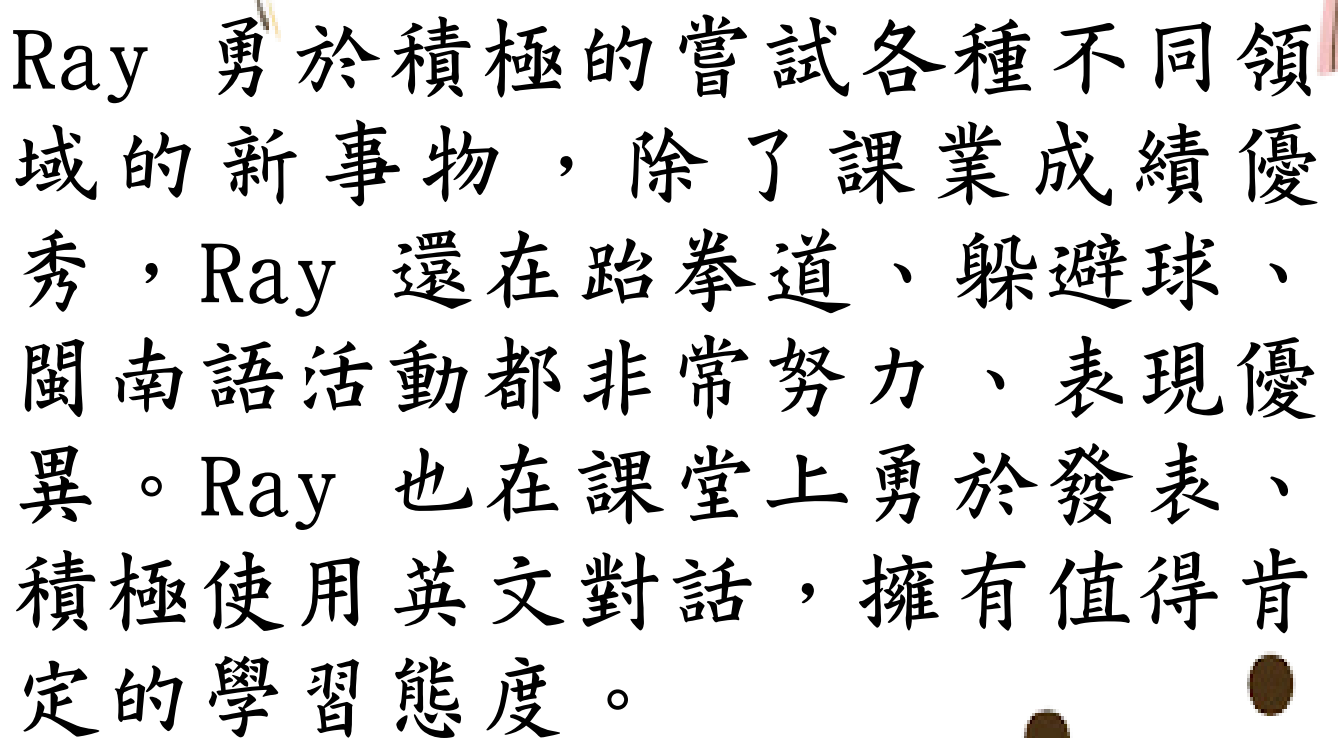 Ray 勇於積極的嘗試各種不同領
域的新事物，除了課業成績優
秀，Ray 還在跆拳道、躲避球、
閩南語活動都非常努力、表現優
異。Ray 也在課堂上勇於發表、
積極使用英文對話，擁有值得肯
定的學習態度。